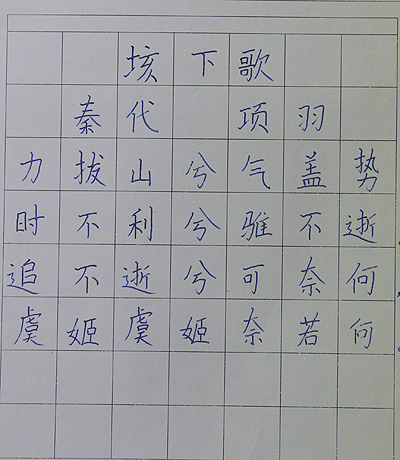 垓下歌
秦代 项羽
力拔山兮气盖势
时不利兮骓不逝。
追不逝兮可奈何,
虞姬虞姬奈若何。